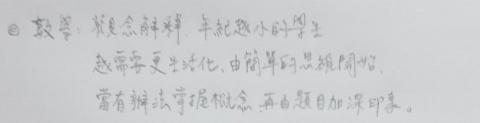 ◎ 數學：觀念解釋，年紀越小的學生
越需要更生活化，由簡單的思維開始，
當有辦法掌握概念，再由題目加深印象。